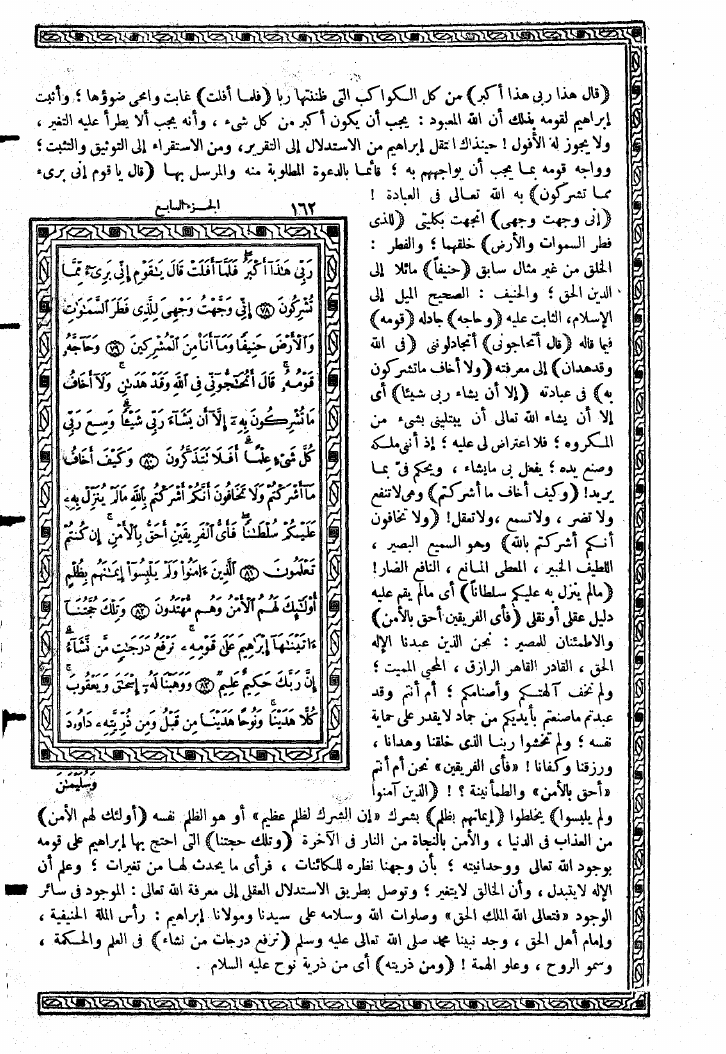 (قال هذا ربى هذا أكبر) من كل الكواكب التى ظننتها ربا (فلما أفلت) غابت وامحى ضوؤها ؛ وأثبت
إبراهيم لقومه بذلك أن الله المعبود : يجب أن يكون أكبر من كل شىء ، وأنه يجب ألا يطرأ عليه التغير ،
ولا يجوز له الأفول ! حينذاك انتقل إبراهيم من الاستدلال إلى التقرير، ومن الاستقراء إلى التوثيق والتثبت ؛
وواجه قومه بما يجب أن يواجههم به ؛ قائما بالدعوة المطلوبة منه والمرسل بها (قال ياقوم إنى برىء
مما تشركون) به الله تعالى فى العبادة !
(إنى وجهت وجهى) اتجهت بكليتى (للذى
فطر السموات والأرض) خلقهما ؛ والفطر :
الخلق من غير مثال سابق (حنيفاً) مائلا إلى
الدين الحق ؛ والحنيف : الصحيح الميل إلى
الإسلام، الثابت عليه (وحاجه) جادله (قومه)
فيما قاله (قال أتحاجونى) أتجادلوننى (فى الله
وقدهدان) إلى معرفته (ولا أخاف ماتشركون
به) فى عبادته (إلا أن يشاء ربى شيئا) أى
إلا أن يشاء الله تعالى أن يبتلينى بشىء من
المكروه ؛ فلا اعتراض لى عليه ؛ إذ أننى ملكه
وصنع يده ؛ يفعل بى مايشاء ، ويحكم فىّ بما
يريد! (وكيف أخاف ما أشركتم) وهى لاتنفع
ولا تضر ، ولاتسمع ،ولاتعقل! (ولا تخافون
أنكم أشركتم بالله) وهو السميع البصير ،
اللطيف الخبير ، المعطى المانع ، النافع الضار!
(مالم ينزل به عليكم سلطاناً) أى مالم يقم عليه
دليل عقلى أو نقلى (فأى الفريقين أحق بالأمن)
والاطمئنان للمصير : نحن الذين عبدنا الإله
الحق ، القادر القاهر الرازق ، المحيى المميت ؛
ولم نخف آلهتكم وأصنامكم ؛ أم أنتم وقد
عبدتم ماصنعتم بأيديكم من جماد لايقدر على حماية
نفسه ؛ ولم تخشوا ربنا الذى خلقنا وهدانا ،
ورزقنا وكفانا ! «فأى الفريقين» نحن أم أنتم
«أحق بالأمن» والطمأنينة ؟ ! (الذين آمنوا
ولم يلبسوا) يخلطوا (إيمانهم بظلم) بشرك «إن الشرك لظلم عظيم» أو هو الظلم نفسه (أولئك لهم الأمن)
من العذاب فى الدنيا ، والأمن بالنجاة من النار فى الآخرة (وتلك حجتنا) التى احتج بها إبراهيم على قومه
بوجود الله تعالى ووحدانيته ؛ بأن وجهنا نظره للكائنات ، فرأى ما يحدث لها من تغيرات ؛ وعلم أن
الإله لايتبدل ، وأن الخالق لايتغير ؛ وتوصل بطريق الاستدلال العقلى إلى معرفة الله تعالى : الموجود فى سائر
الوجود «فتعالى الله الملك الحق» وصلوات الله وسلامه على سيدنا ومولانا إبراهيم : رأس الملة الحنيفية ،
وإمام أهل الحق ، وجد نبينا محمد صلى الله تعالى عليه وسلم (نرفع درجات من نشاء) فى العلم والحكمة ،
وسمو الروح ، وعلو الهمة ! (ومن ذريته) أى من ذرية نوح عليه السلام .
١٦٢ الجزء السابع
رَبِّى هَٰذَآ أَكْبَرُ فَلَمَّآ أَفَلَتْ قَالَ يَٰقَوْمِ إِنِّى بَرِىٓءٌ مِّمَّا
تُشْرِكُونَ ٧٨ إِنِّى وَجَّهْتُ وَجْهِىَ لِلَّذِى فَطَرَ ٱلسَّمَٰوَٰتِ
وَٱلْأَرْضَ حَنِيفًا وَمَآ أَنَا۠ مِنَ ٱلْمُشْرِكِينَ ٧٩ وَحَآجَّهُۥ
قَوْمُهُۥ قَالَ أَتُحَٰٓجُّوٓنِّى فِى ٱللَّهِ وَقَدْ هَدَىٰنِ وَلَآ أَخَافُ
مَا تُشْرِكُونَ بِهِۦٓ إِلَّآ أَن يَشَآءَ رَبِّى شَيْـًٔا وَسِعَ رَبِّى
كُلَّ شَىْءٍ عِلْمًا أَفَلَا تَتَذَكَّرُونَ ٨٠ وَكَيْفَ أَخَافُ
مَآ أَشْرَكْتُمْ وَلَا تَخَافُونَ أَنَّكُمْ أَشْرَكْتُم بِٱللَّهِ مَا لَمْ يُنَزِّلْ بِهِۦ
عَلَيْكُمْ سُلْطَٰنًا فَأَىُّ ٱلْفَرِيقَيْنِ أَحَقُّ بِٱلْأَمْنِ إِن كُنتُمْ
تَعْلَمُونَ ٨١ ٱلَّذِينَ ءَامَنُوا۟ وَلَمْ يَلْبِسُوٓا۟ إِيمَٰنَهُم بِظُلْمٍ
أُو۟لَٰٓئِكَ لَهُمُ ٱلْأَمْنُ وَهُم مُّهْتَدُونَ ٨٢ وَتِلْكَ حُجَّتُنَآ
ءَاتَيْنَٰهَآ إِبْرَٰهِيمَ عَلَىٰ قَوْمِهِۦ نَرْفَعُ دَرَجَٰتٍ مَّن نَّشَآءُ
إِنَّ رَبَّكَ حَكِيمٌ عَلِيمٌ ٨٣ وَوَهَبْنَا لَهُۥٓ إِسْحَٰقَ وَيَعْقُوبَ
كُلًّا هَدَيْنَا وَنُوحًا هَدَيْنَا مِن قَبْلُ وَمِن ذُرِّيَّتِهِۦ دَاوُۥدَ
وَسُلَيْمَٰنَ